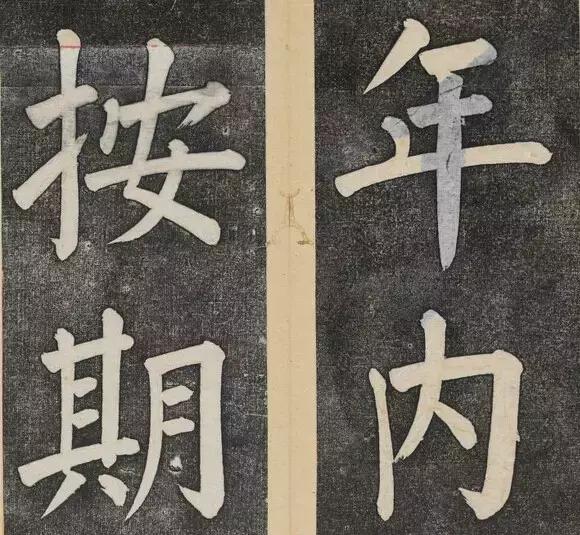 年内
按期